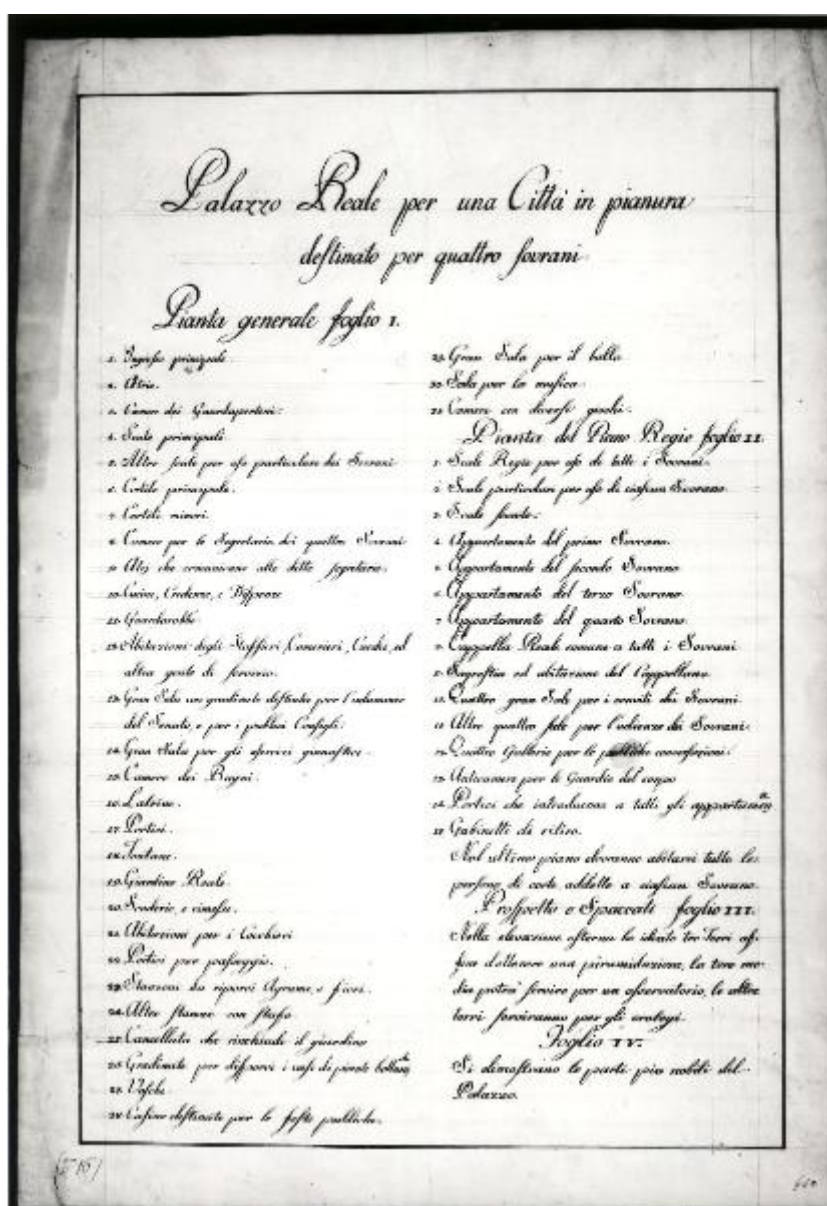 Palazzo Reale per una Città in pianura
destinato per quattro sovrani
Pianta generale foglio 1.
1. Ingresso principale.
2. Atrio.
3. Camere dei Guardaportoni.
4. Scale principali
5. Altre scale per uso particolare dei Sovrani
6. Cortile principale.
7. Cortili minori.
8. Camere per le Segretarie dei quattro Sovrani
9. Atrj che comunicano alle dette segretarie.
10. Cucine, Credenze, e Dispense
11. Guardarobbe
12. Abitazioni degli Staffieri, Camerieri, Cuochi, ed
altra gente di servizio.
13. Gran Sala con gradinate destinata per l'adunanze
del Senato, e per i publici Consigli.
14. Gran Sala per gli esercizi ginnastici.
15. Camere dei Bagni.
16. Latrine.
17. Portici.
18. Fontane.
19. Giardino Reale.
20. Scuderie, e rimesse.
21. Abitazioni per i Cocchieri
22. Portici per passeggio.
23. Stanzoni da riporvi Agrumi, e fiori.
24. Altre stanze con stufe
25. Cancellata che rinchiude il giardino
26. Gradinate per disporvi i vasi di piante
27. Vasche
28. Casino destinato per le feste publiche.
29. Gran Sala per il ballo
30. Sala per la musica.
31. Camere con diversi giochi.
Pianta del Piano Regio foglio II.
1. Scale Regie per uso di tutti i Sovrani.
2. Scale particolari per uso di ciascun Sovrano
3. Scale secrete.
4. Appartamento del primo Sovrano.
5. Appartamento del secondo Sovrano
6. Appartamento del terzo Sovrano
7. Appartamento del quarto Sovrano.
8. Cappella Reale comune a tutti i Sovrani
9. Sagrestia ed abitazione del Cappellano
10. Quattro gran Sale per i conviti dei Sovrani.
11. Altre quattro sale per l'udienze dei Sovrani.
12. Quattro Gallerie per le publiche conversazioni.
13. Anticamere per le Guardie del corpo
14. Portici che introducono a tutti gli appartamenti
15. Gabinetti di ritiro.
Nel ultimo piano dovranno abitarvi tutte le
persone di corte addette a ciascun Sovrano.
Prospetto e Spaccati foglio III.
Nella elevazione esterna ho ideato tre Torri
una la tore me-
dia potrà servire per un osservatorio, le altre
torri serviranno per gli orologi.
Foglio IV.
Si dimostrano le parti più nobili del
Palazzo.